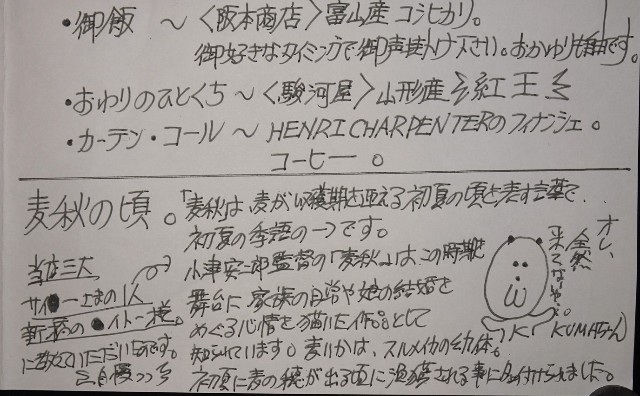 ・御飯 ～〈阪本商店〉富山産 コシヒカリ。
御好きなタイミングで御声掛け下さい。おかわりも自由です。
・おわりのひとくち～〈駿河屋〉山形産 紅王
・カーテン・コール～ HENRI CHARPENTERのフィナンシェ。
コーヒー。
麦秋の頃。「麦秋は、麦が収穫期を迎える初夏の頃を表す言葉で、
初夏の季語の一つです。
小津安二郎監督の「麦秋」は、この時期を
舞台に、家族の日常や娘の結婚を
めぐる心情を描いた作品として
知られています。麦いかは、スルメイカの幼体。
初夏に麦の穂が出る頃に漁獲される事に名付けられました。
三大
の1人
新 イト 様。
に教えていただいたです。
オレ、
全然
来てないや…
KUMAちゃん)